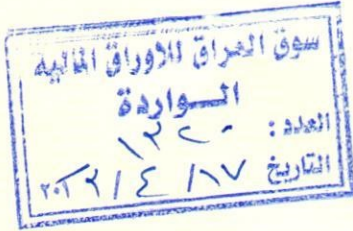 سوق العراق للاوراق المالية
الـــواردة
العدد :
التاريخ ١٧ / ٤ /